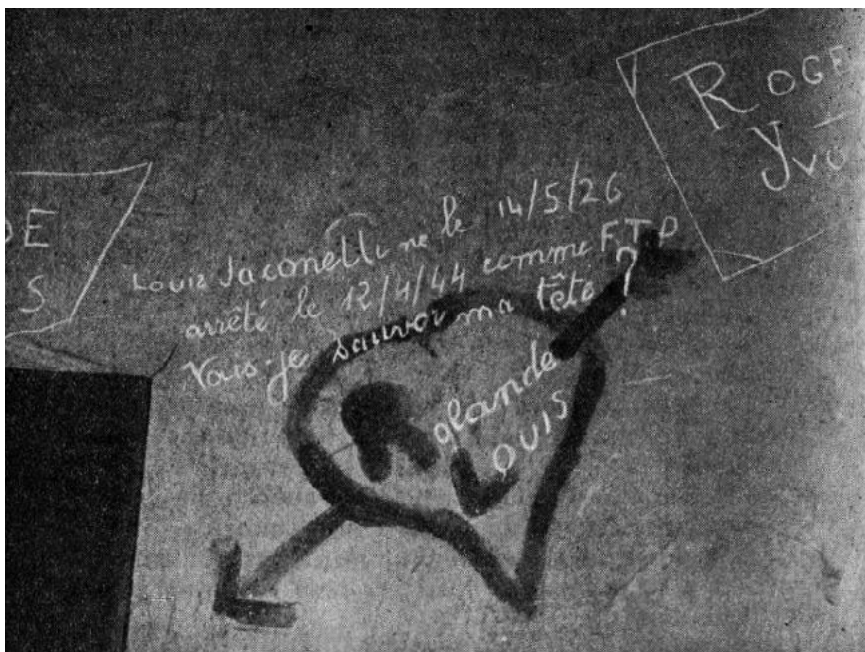 ROGE
YVO
DE
S
Louis Jaconelli né le 14/5/26
arrêté le 12/4/44 comme FTP
Vais-je sauver ma tête ?
Rolande
LOUIS